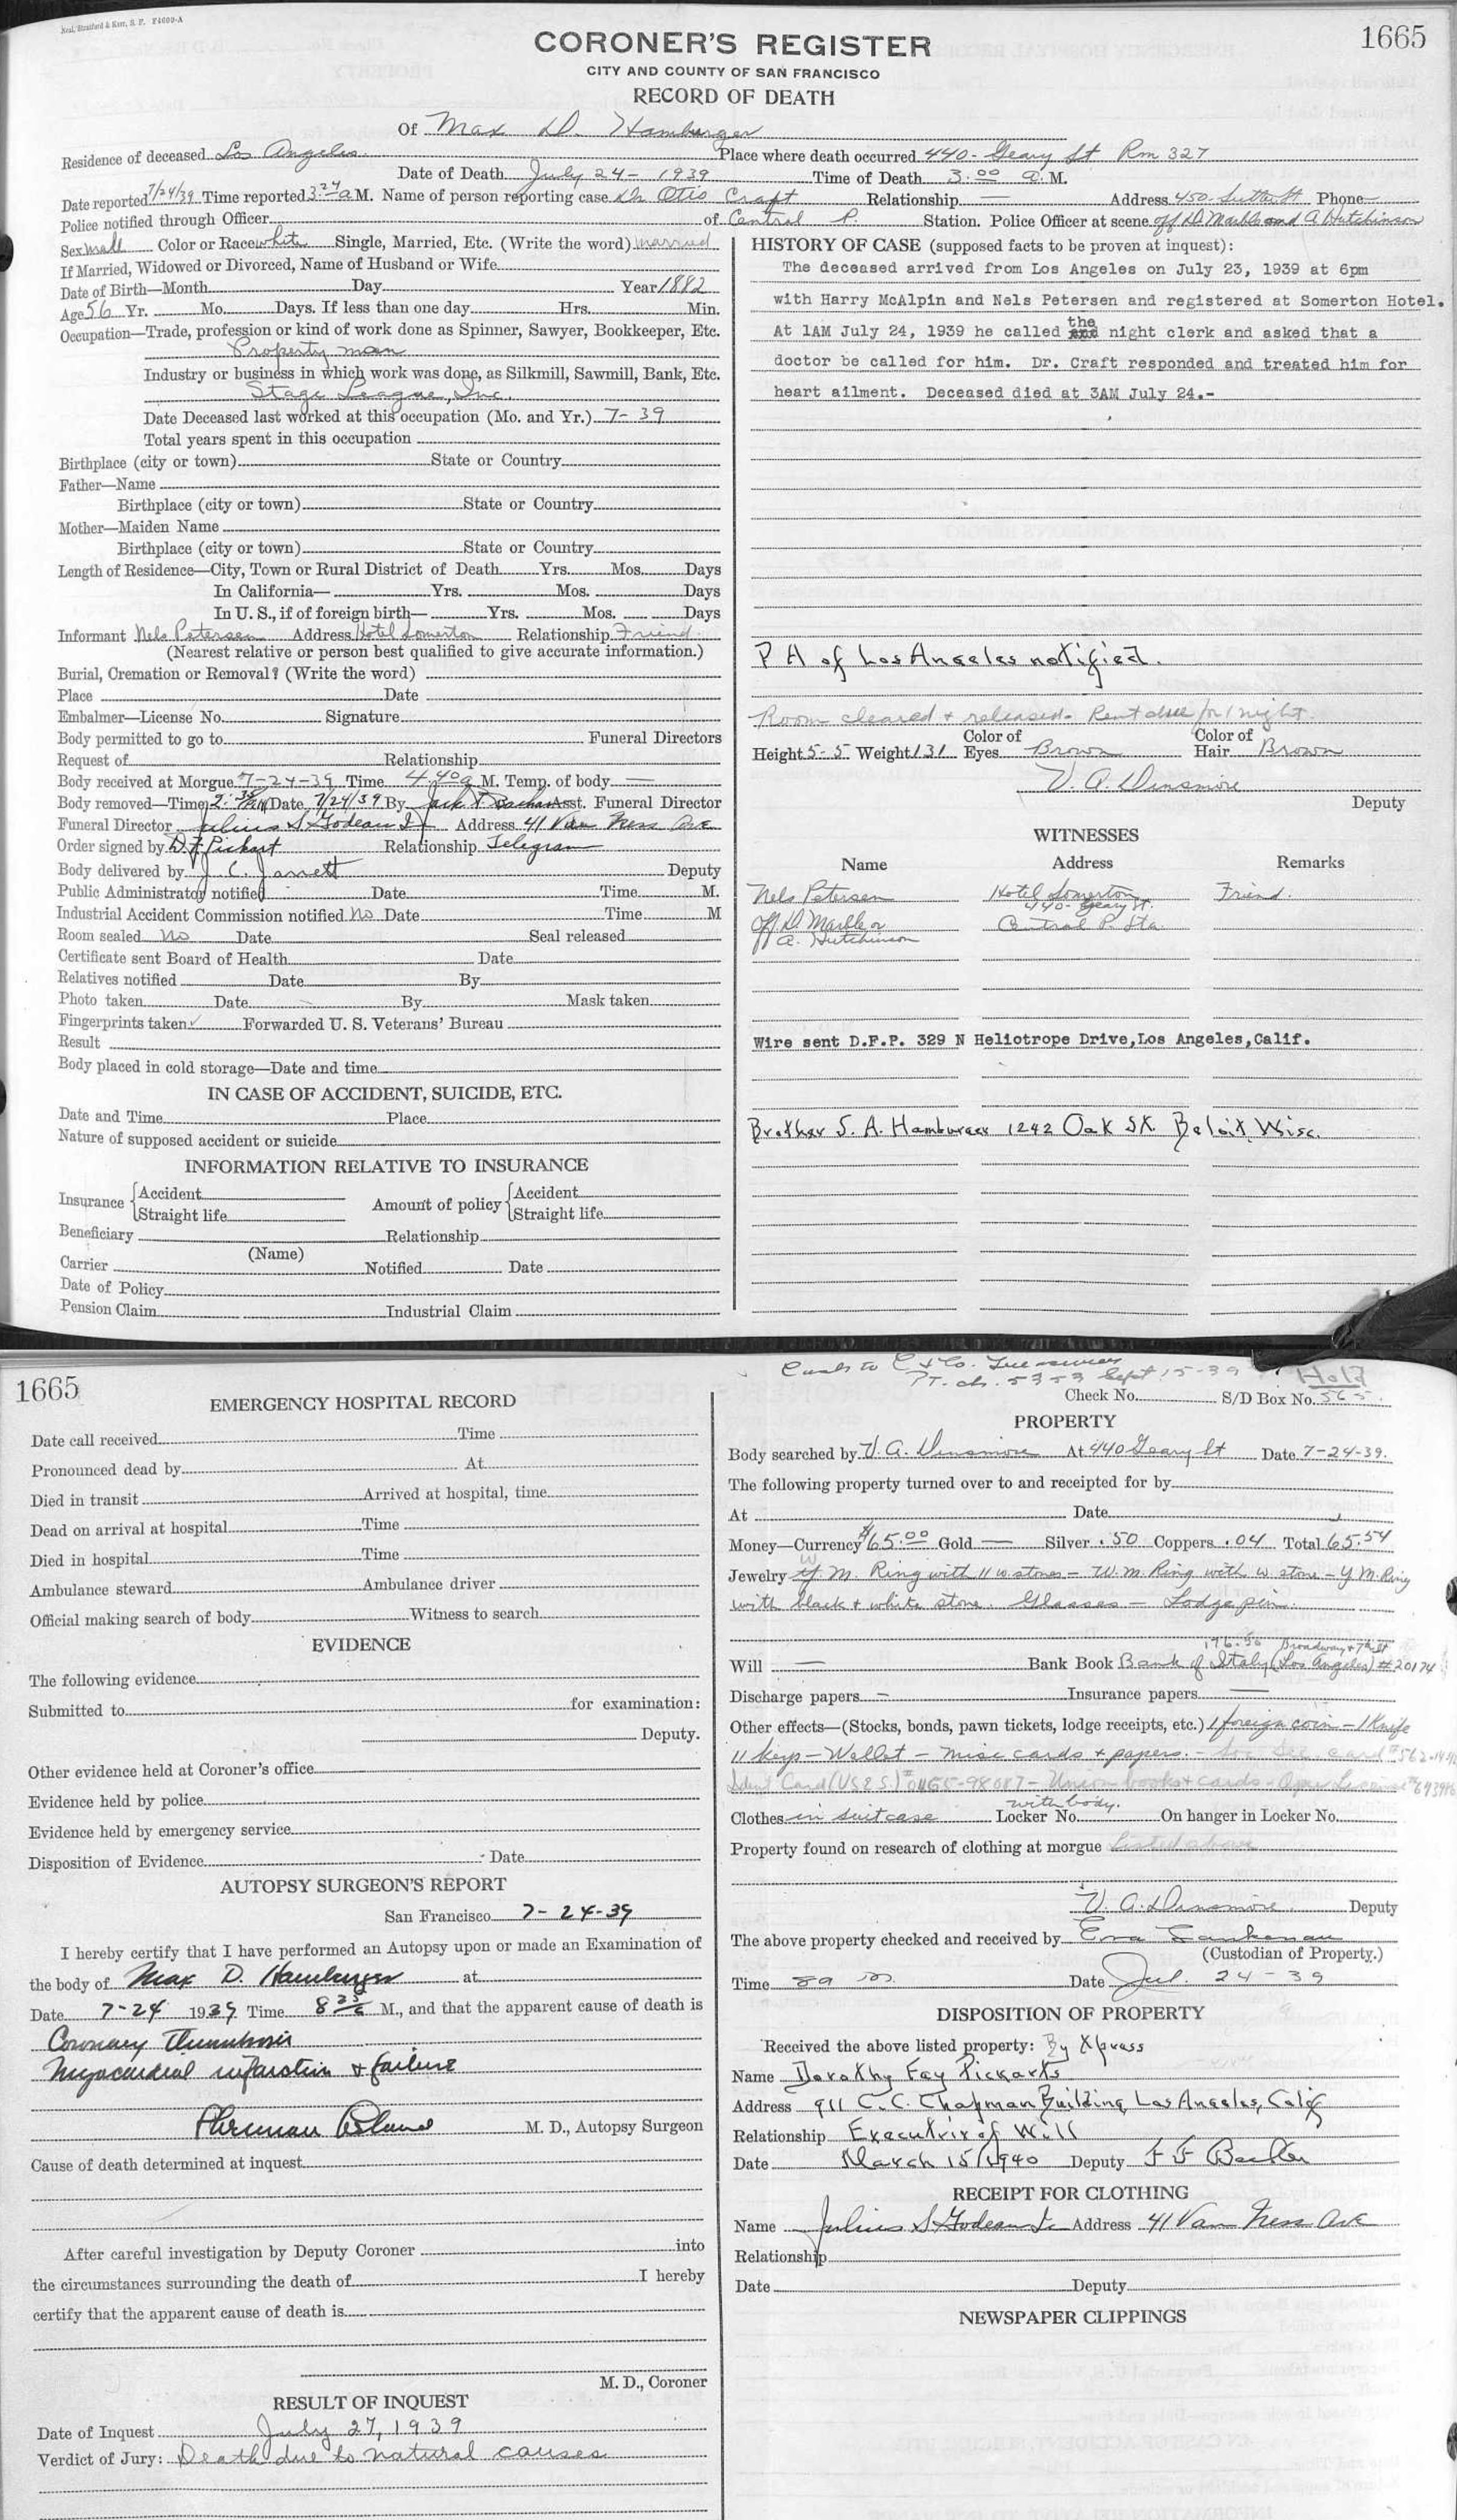 Neal, Stratford & Kerr, S. F. F4600-A
1665
CORONER'S REGISTER
CITY AND COUNTY OF SAN FRANCISCO
RECORD OF DEATH
Of Max D. Hamburger
Residence of deceased Los Angeles Place where death occurred 440- Geary St Rm 327
Date of Death July 24- 1939 Time of Death 3:00 a. M.
Date reported 7/24/39 Time reported 3:24 a M. Name of person reporting case Dr Otis Craft Relationship — Address 450- Sutter St Phone
Police notified through Officer of Central P. Station. Police Officer at scene off D. Marble and A Hutchinson
Sex Male Color or Race white Single, Married, Etc. (Write the word) married
If Married, Widowed or Divorced, Name of Husband or Wife
Date of Birth—Month Day Year 1882
Age 56 Yr. Mo. Days. If less than one day Hrs. Min.
Occupation—Trade, profession or kind of work done as Spinner, Sawyer, Bookkeeper, Etc.
Property man
Industry or business in which work was done, as Silkmill, Sawmill, Bank, Etc.
Stage League, Inc.
Date Deceased last worked at this occupation (Mo. and Yr.) 7-39
Total years spent in this occupation
Birthplace (city or town) State or Country
Father—Name
Birthplace (city or town) State or Country
Mother—Maiden Name
Birthplace (city or town) State or Country
Length of Residence—City, Town or Rural District of Death Yrs. Mos. Days
In California— Yrs. Mos. Days
In U. S., if of foreign birth— Yrs. Mos. Days
Informant Nels Petersen Address Hotel Somerton Relationship Friend.
(Nearest relative or person best qualified to give accurate information.)
Burial, Cremation or Removal? (Write the word)
Place Date
Embalmer—License No. Signature
Body permitted to go to Funeral Directors
Request of Relationship
Body received at Morgue 7-24-39 Time 4:40 a M. Temp. of body —
Body removed—Time 2:35 PM Date 7/24/39 By Jack Asst. Funeral Director
Funeral Director Julius S Godeau Address 41 Van Ness Ave
Order signed by D.F. Pickart Relationship Telegram
Body delivered by J. C. Jarrett Deputy
Public Administrator notified Date Time M.
Industrial Accident Commission notified No Date Time M
Room sealed No Date Seal released
Certificate sent Board of Health Date
Relatives notified Date By
Photo taken Date By Mask taken
Fingerprints taken ✓ Forwarded U. S. Veterans' Bureau
Result
Body placed in cold storage—Date and time
IN CASE OF ACCIDENT, SUICIDE, ETC.
Date and Time Place
Nature of supposed accident or suicide
INFORMATION RELATIVE TO INSURANCE
Insurance { Accident Straight life Amount of policy { Accident Straight life
Beneficiary Relationship
(Name)
Carrier Notified Date
Date of Policy
Pension Claim Industrial Claim
HISTORY OF CASE (supposed facts to be proven at inquest):
The deceased arrived from Los Angeles on July 23, 1939 at 6pm
with Harry McAlpin and Nels Petersen and registered at Somerton Hotel.
At 1AM July 24, 1939 he called the night clerk and asked that a
doctor be called for him. Dr. Craft responded and treated him for
heart ailment. Deceased died at 3AM July 24.-
P A of Los Angeles notified.
Room cleared + released. Rent due for 1 night.
Height 5-5 Weight 131 Color of Eyes Brown Color of Hair Brown
V. A. Dinsmore
Deputy
WITNESSES
Name Address Remarks
Nels Petersen Hotel Somerton 440- Geary St. Friend.
off D. Marble or Central P. Sta.
A. Hutchinson
Wire sent D.F.P. 329 N Heliotrope Drive,Los Angeles,Calif.
Brother S. A. Hamburger 1242 Oak St. Beloit, Wisc.
1665
EMERGENCY HOSPITAL RECORD
Date call received Time
Pronounced dead by At
Died in transit Arrived at hospital, time
Dead on arrival at hospital Time
Died in hospital Time
Ambulance steward Ambulance driver
Official making search of body Witness to search
EVIDENCE
The following evidence
Submitted to for examination:
Deputy.
Other evidence held at Coroner's office
Evidence held by police
Evidence held by emergency service
Disposition of Evidence Date
AUTOPSY SURGEON'S REPORT
San Francisco 7-24-39
I hereby certify that I have performed an Autopsy upon or made an Examination of
the body of Max D. Hamburger at
Date 7-24 1939 Time 8 35 a M., and that the apparent cause of death is
Coronary Thrombosis
Myocardial infarction + failure
M. D., Autopsy Surgeon
Cause of death determined at inquest
After careful investigation by Deputy Coroner into
the circumstances surrounding the death of I hereby
certify that the apparent cause of death is
M. D., Coroner
RESULT OF INQUEST
Date of Inquest July 27, 1939
Verdict of Jury: Death due to natural causes
Cash to C + Co. Treasurer
Pt. ch. 5353 Sept 15-39 Hold
Check No. S/D Box No. 565.
PROPERTY
Body searched by V. A. Dinsmore At 440 Geary St Date 7-24-39.
The following property turned over to and receipted for by
At Date
Money—Currency $65.00 Gold — Silver .50 Coppers .04 Total 65.54
Jewelry W M. Ring with 11 w. stones – W. M. Ring with w. stone – Y M. Ring
with black + white stone. Glasses – Lodge pin.
176.56 Broadway + 7th St
Will — Bank Book Bank of Italy (Los Angeles) #20174
Discharge papers – Insurance papers —
Other effects—(Stocks, bonds, pawn tickets, lodge receipts, etc.) 1 foreign coin – 1 Knife
11 keys – Wallet – misc cards + papers. – Soc Sec. card #562-14
Ident Card (USES) – Union books + cards – Oper License
Clothes in suitcase with body. Locker No. On hanger in Locker No.
Property found on research of clothing at morgue Listed above
V. A. Dinsmore Deputy
The above property checked and received by Eva
(Custodian of Property.)
Time 8 a m. Date Jul. 24-39
DISPOSITION OF PROPERTY
Received the above listed property: By Xpress
Name Dorothy Fay Pickarts
Address 911 C. C. Chapman Building, Los Angeles, Calif
Relationship Executrix of Will
Date March 15/1940 Deputy
RECEIPT FOR CLOTHING
Name Julius S Godeau Address 41 Van Ness Ave
Relationship
Date Deputy
NEWSPAPER CLIPPINGS